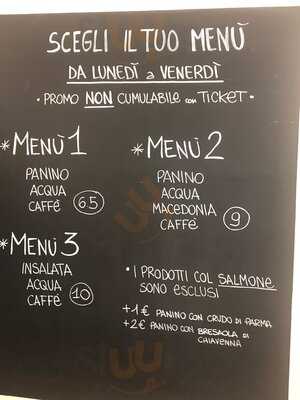 SCEGLI IL TUO MENÙ
DA LUNEDÌ a VENERDÌ
• PROMO NON CUMULABILE con TICKET •
*MENÙ 1
PANINO
ACQUA
CAFFÉ 6.5
*MENÙ 2
PANINO
ACQUA
MACEDONIA
CAFFÉ 9
*MENÙ 3
INSALATA
ACQUA
CAFFÉ 10
• I PRODOTTI COL SALMONE
SONO ESCLUSI
+1€ PANINO CON CRUDO DI PARMA
+2€ PANINO CON BRESAOLA DI
CHIAVENNA